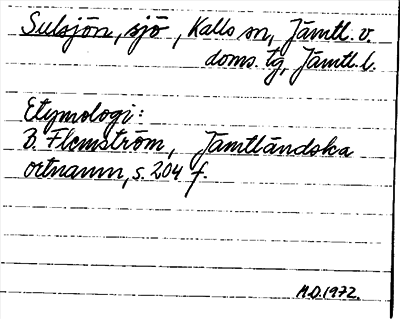 Sulsjön, sjö, Kalls sn, Jämtl. v.
doms. tg, Jämtl. l.
Etymologi:
B. Flemström, Jämtländska
ortnamn, s. 204 f.
M.D. 1972.